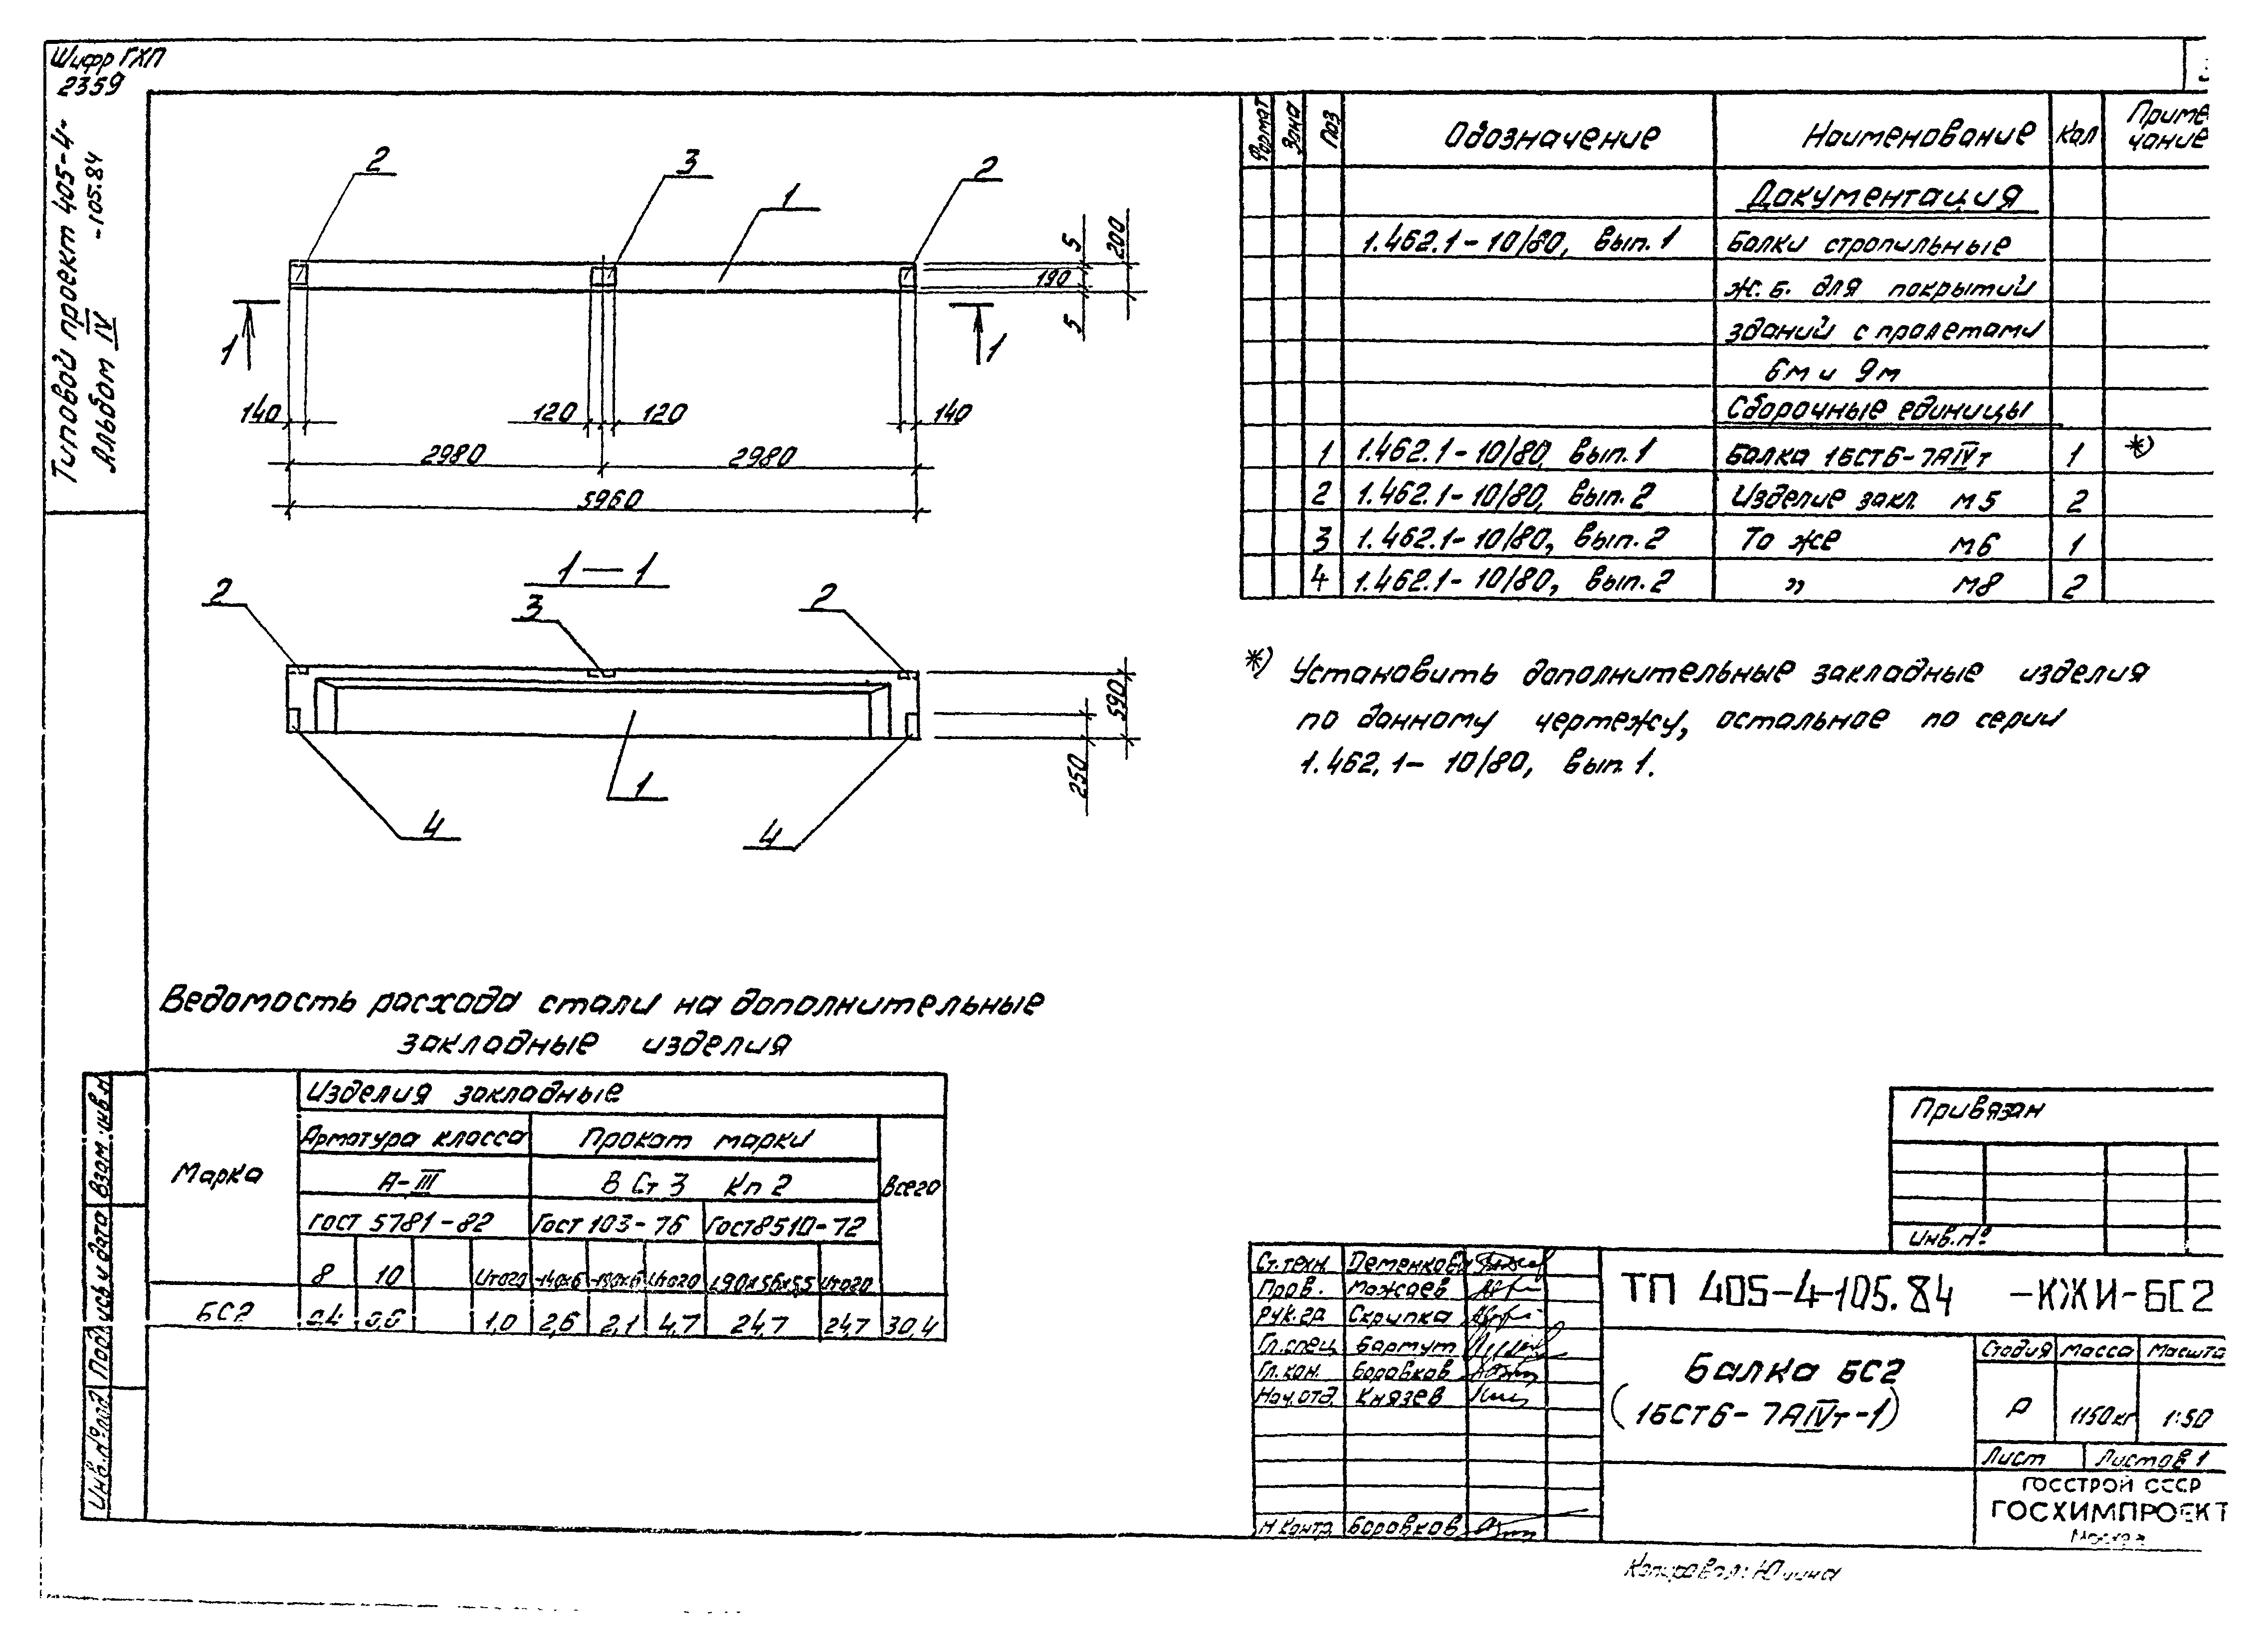 Шифр ГХП
2359
Типовой проект 405-4-
-105.84
Альбом IV
2
3
2
1
5
200
190
5
1
1
140
120
120
140
2980
2980
5960
1—1
2
3
2
590
250
1
4
4
Формат Зона Поз Обозначение Наименование Кол Приме
чание
Документация
1.462.1-10/80, вып.1 Балки стропильные
ж.б. для покрытий
зданий с пролетами
6м и 9м
Сборочные единицы
1 1.462.1-10/80, вып.1 Балка 1БСТ6-7АIVт 1 *)
2 1.462.1-10/80, вып.2 Изделие закл. М5 2
3 1.462.1-10/80, вып.2 То же М6 1
4 1.462.1-10/80, вып.2 " М8 2
*) Установить дополнительные закладные изделия
по данному чертежу, остальное по серии
1.462.1-10/80, вып.1.
Ведомость расхода стали на дополнительные
закладные изделия
Марка
Изделия закладные
Арматура класса Прокат марки
А-III В Ст 3 Кп 2 Всего
Гост 5781-82 Гост 103-76 Гост 8510-72
8 10 Итого -140х6 Итого Итого
БС2 0,4 0,6 1,0 2,6 2,1 4,7 24,7 24,7 30,4
Взам.инв.н
Подпись и дата
Инв.№ подл
Привязан
Инв.№
Ст.техн. Деменкова
Пров. Можаев
Рук.гр Скрипка
Гл.спец Бартут
Гл.кон. Боровков
Нач.отд. Князев
Н.контр. Боровков
ТП 405-4-105.84 -КЖИ-БС2
Балка БС2
(1БСТ6-7АIVт-1)
Стадия Масса Масшта
Р 1150кг 1:50
Лист Листов 1
ГОССТРОЙ СССР
ГОСХИМПРОЕКТ
Москва
Копировал: Юлина